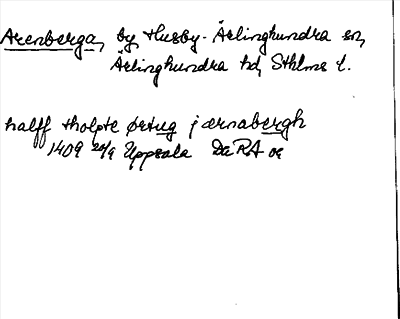 Arenberga, by, Husby-Ärlinghundra sn,
Ärlinghundra hd, Sthlms l.
halff tholpte ørtug j ærnabergh
1409 20/9 Uppsala DaRA or